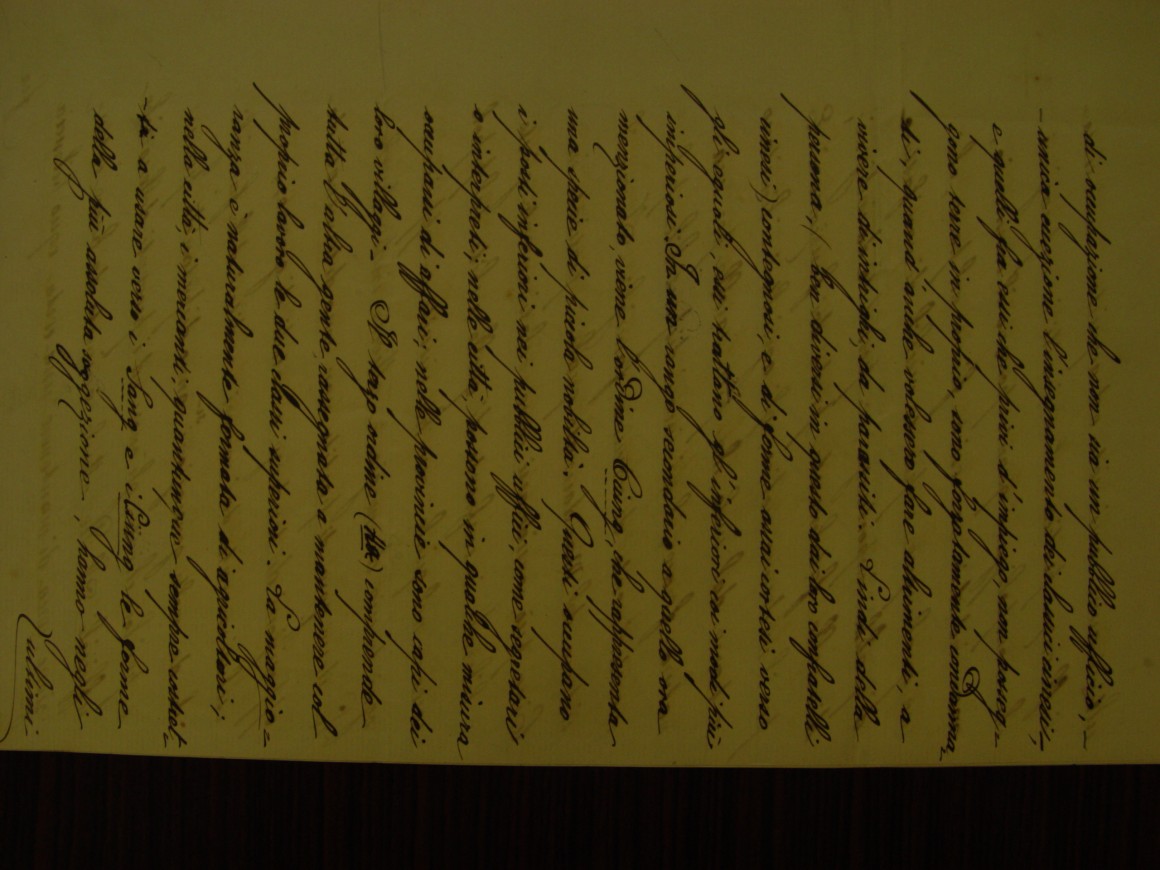 di occupazione che non sia un pubblico ufficio,
-mica eccezione l'insegnamento dei classici cinesi;
e quelli fra essi che, privi d'impiego, non posseg-
gono terre in proprio, sono forzatamente condanna-
ti, quand'anche volessero fare altrimenti, a
vivere d'intrighi, da parassiti. Quindi della
prima, (ben diversi in questo dai loro confratelli
cinesi) contegnosi, e di forme assai cortesi verso
gli eguali, essi trattano gl'inferiori coi modi più
imperiosi. In un rango secondario a quello ora
menzionato, viene l'ordine Ciung, che rappresenta
una specie di piccola nobiltà. Questi occupano
i posti inferiori nei pubblici ufficii, come segretarii
o interpreti; nelle città, possono in qualche misura
occuparsi di affari; nelle provincie sono capi dei
loro villaggi. Il terzo ordine (Ha) comprende
tutta l'altra gente, rassegnata a mantenere col
proprio lavoro le due classi superiori. La maggio-
ranza è naturalmente formata di agricoltori;
nelle città, i mercanti, quantunque sempre costret-
-ti a dare verso i Iang e i Ciung le prove
della più assoluta soggezione, hanno negli
ultimi